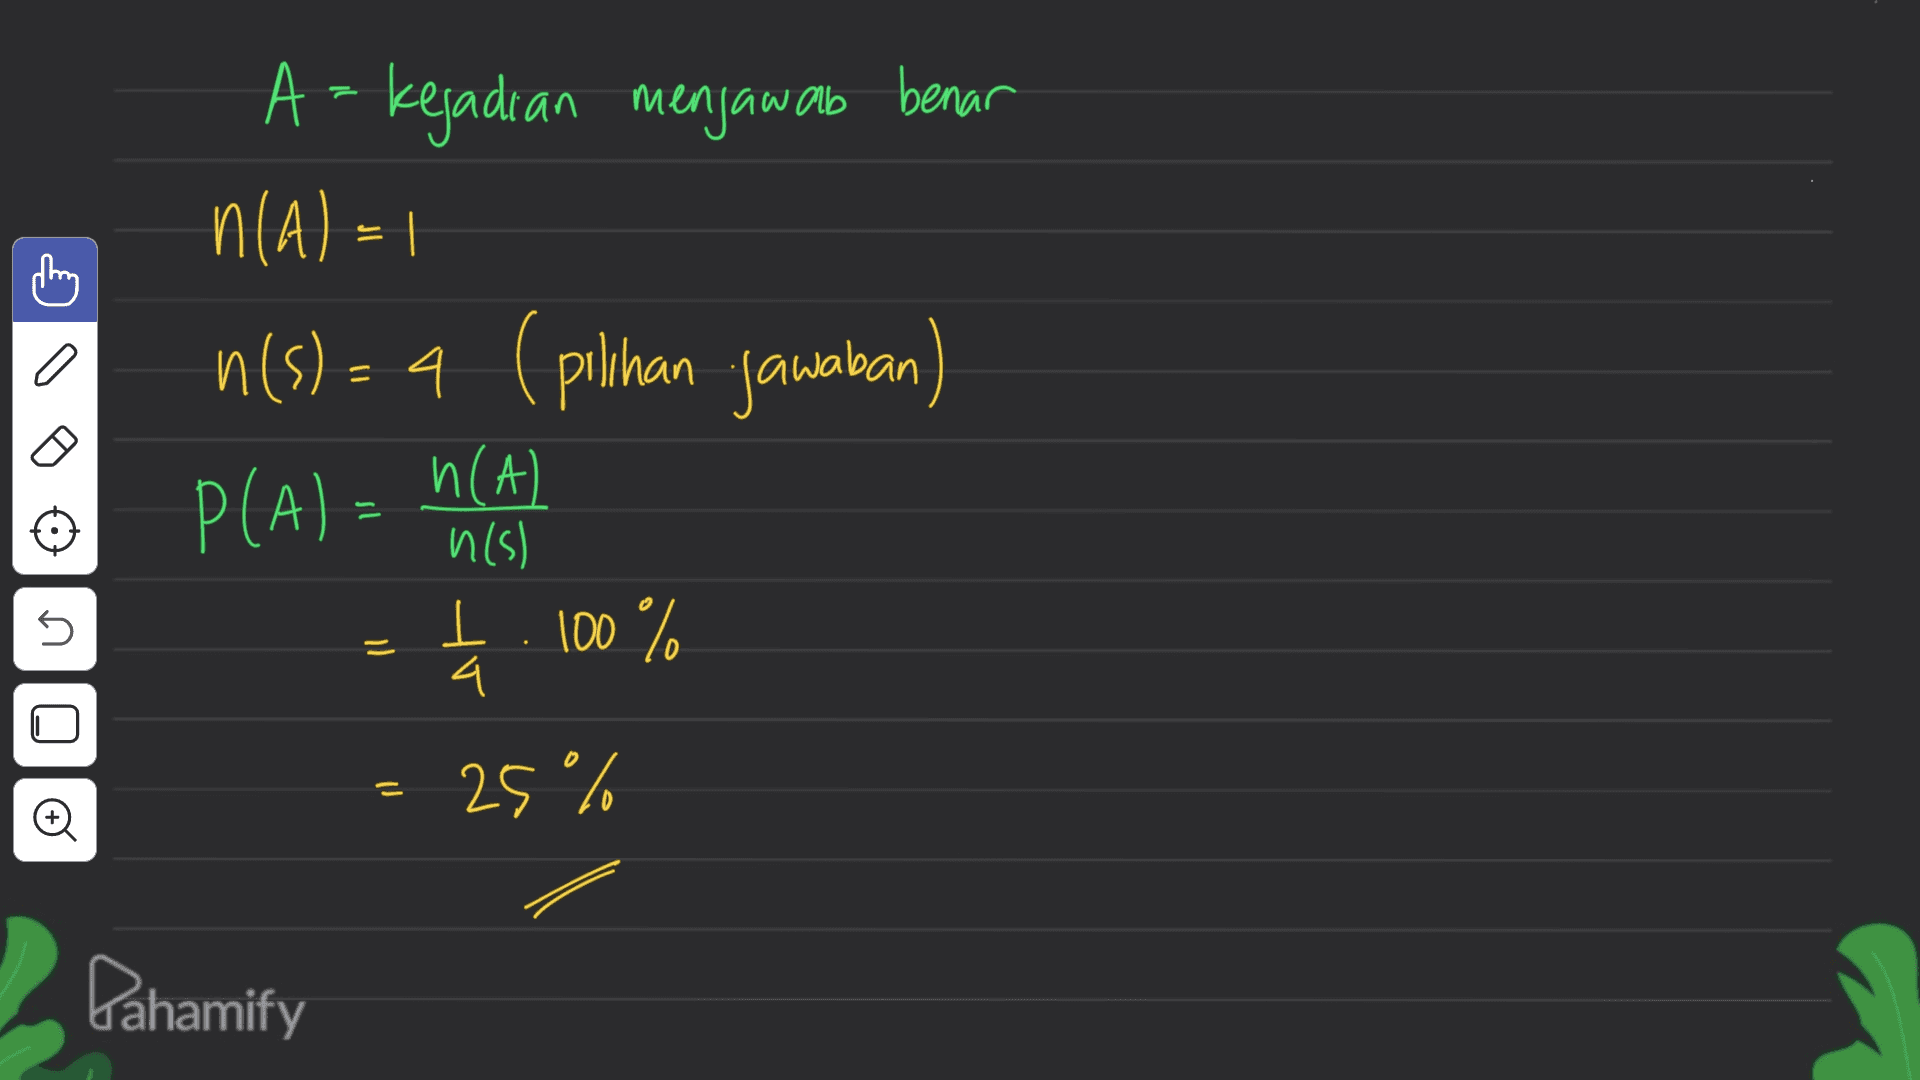 A = kejadian menjawab benar
n(A) = 1
n(s) = 4 (pilihan jawaban)
P(A) = n(A)/n(s)
= 1/4 . 100 %
= 25 %
Pahamify